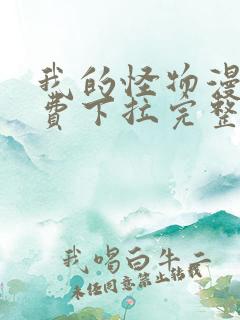 我的怪物漫
费下拉完整
我喝白牛二
未经同意禁止转载